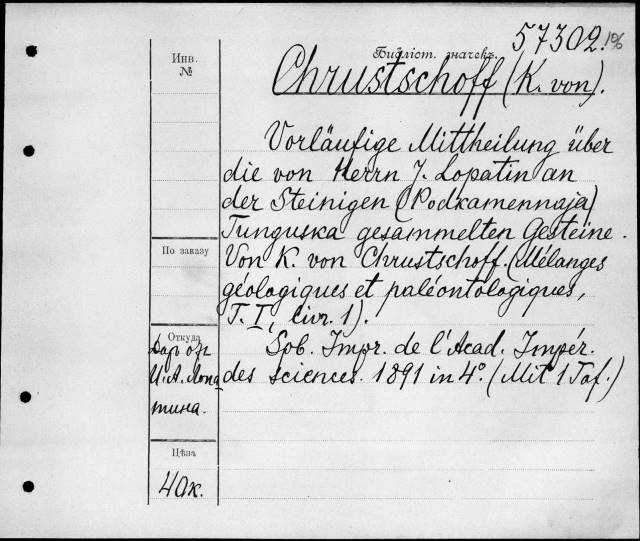 57302. 1%
Инв.
№
Библіот. значекъ
Chrustschoff (K. von).
Vorläufige Mittheilung über
die von Herrn J. Lopatin an
der Steinigen (Podkamennaja)
Tunguska gesammelten Gesteine.
Von K. von Chrustschoff. (Mélanges
géologiques et paléontologiques,
T. I, livr. 1).
Spb. Impr. de l'Acad. Impér.
des sciences. 1891 in 4°. (Mit 1 Taf.)
По заказу
Откуда
Даръ отъ
И. А. Лопа
тина.
Цѣна
40к.